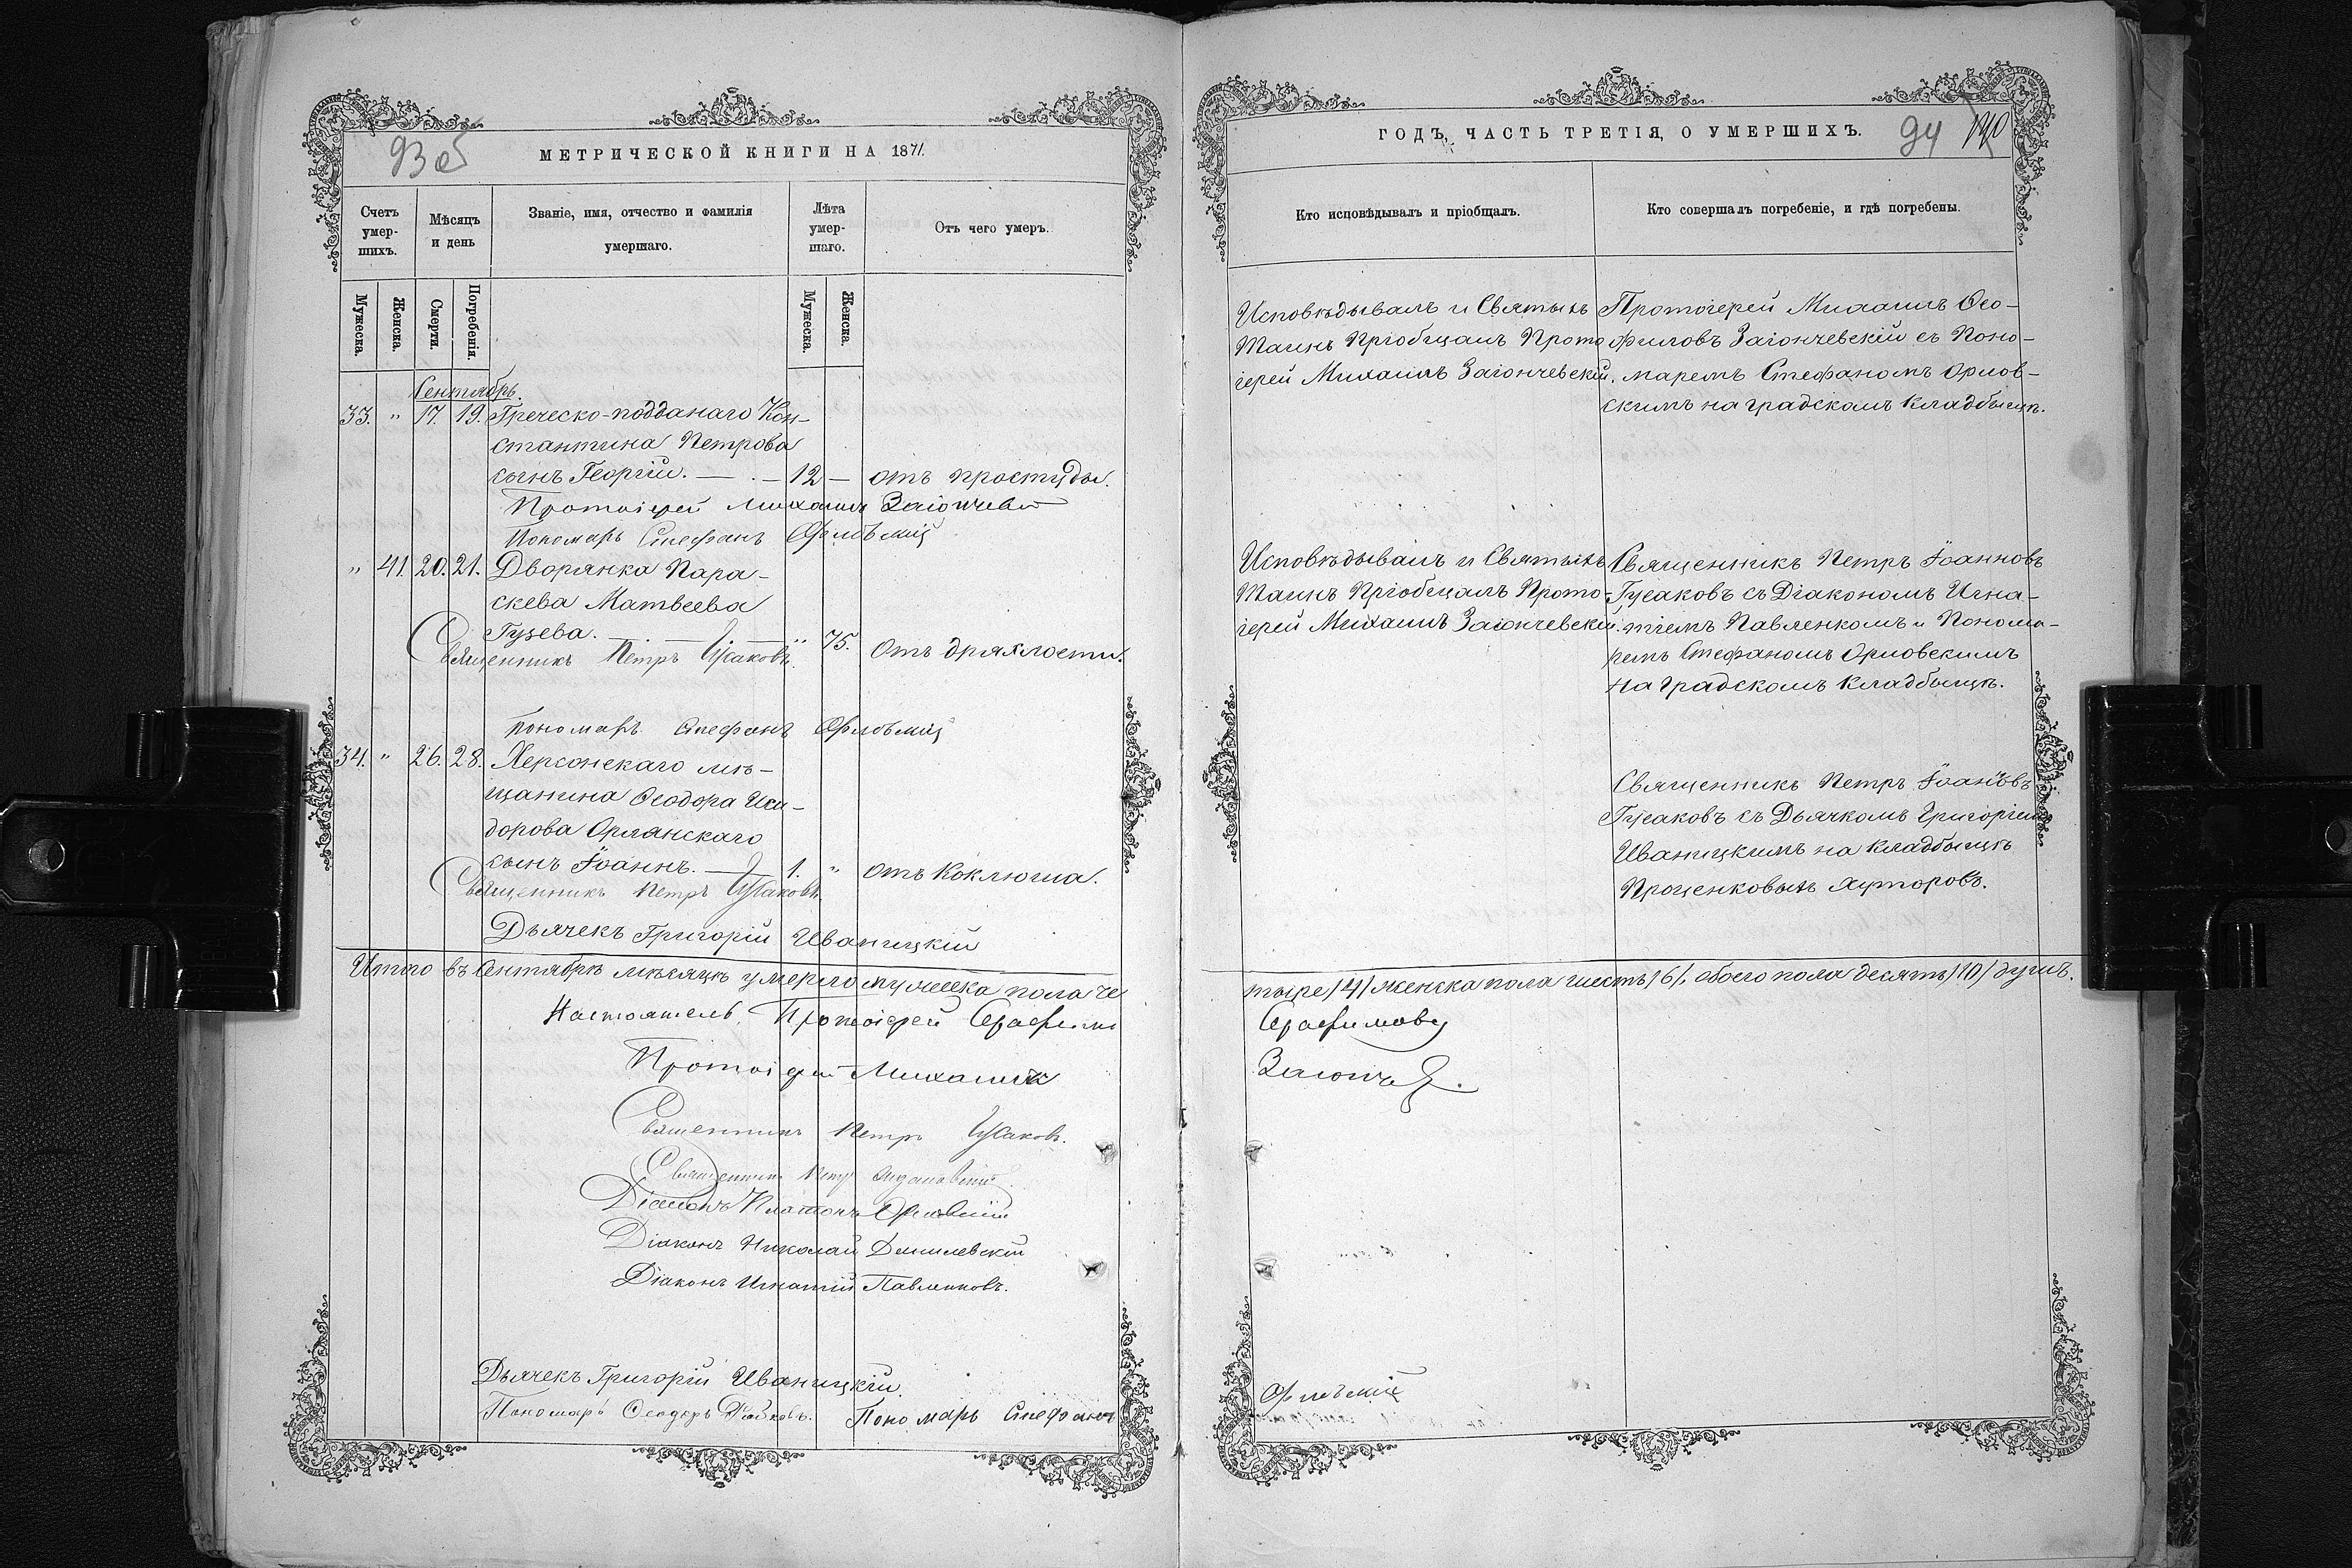 93 об
МЕТРИЧЕСКОЙ КНИГИ НА 1871.
Счетъ умер-шихъ.
Мѣсяцъ и день
Званіе, имя, отчество и фамилія умершаго.
Лѣта умер-шаго.
Отъ чего умеръ.
Мужеска.
Женска.
Смерти.
Погребенія.
Мужеска.
Женска.
Сентябрь.
33. " 17. 19. Греческо-подданаго Кон-
стантина Петрова
сынъ Георгій. — 12 — отъ простуды.
Протоіерей Михаилъ Заіончевс
Пономарь Стефанъ Орловскій
" 41. 20. 21. Дворянка Пара-
скева Матвеева
Гузева. — " 75. отъ дряхлости.
Священникъ Петръ Гусаковъ.
Пономарь Стефанъ Орловскій
34. " 26. 28. Херсонскаго мѣ-
щанина Ѳеодора Иси-
дорова Орлянскаго
сынъ Іоаннъ. — 1. " отъ коклюша.
Священникъ Петръ Гусаковъ.
Дьячекъ Григорій Иваницкій
Итого въ Сентябрѣ мѣсяцѣ умерло мужеска пола че
Настоятель, Протоіерей Серафим
Протоіерей Михаилъ
Священникъ Петръ Гусаковъ.
Священникъ Петръ
Діаконъ Платонъ Орловскій
Діаконъ Николай Данилевскій
Діаконъ Игнатій Павленковъ.
Дьячекъ Григорій Иваницкій.
Пономарь Ѳеодоръ
Пономарь Стефанъ
ГОДЪ, ЧАСТЬ ТРЕТІЯ, О УМЕРШИХЪ.
94
Кто исповѣдывалъ и пріобщалъ.
Кто совершалъ погребеніе, и гдѣ погребены.
Исповѣдывалъ и Святыхъ
Таинъ Пріобщалъ Прото
іерей Михаилъ Заіончевскій.
Протоіерей Михаилъ Ѳео-
филовъ Заіончевскій съ Поно-
маремъ Стефаномъ Орлов-
скимъ на градскомъ кладбыщѣ.
Исповѣдывалъ и Святыхъ
Таинъ Пріобщалъ Прото-
іерей Михаилъ Заіончевскій.
Священникъ Петръ Іоанновъ
Гусаковъ съ Діакономъ Игна-
тіемъ Павленкомъ и Понома-
ремъ Стефаномъ Орловскимъ
на Градскомъ кладбыщѣ.
Священникъ Петръ Іоанновъ
Гусаковъ съ Дьячкомъ Григоріемъ
Иваницкимъ на кладбыщѣ
Проценковыхъ хуторовъ.
тыре /4/ женска пола шесть /6/, обоего пола десять /10/ душъ.
Серафимовъ
Орловскій